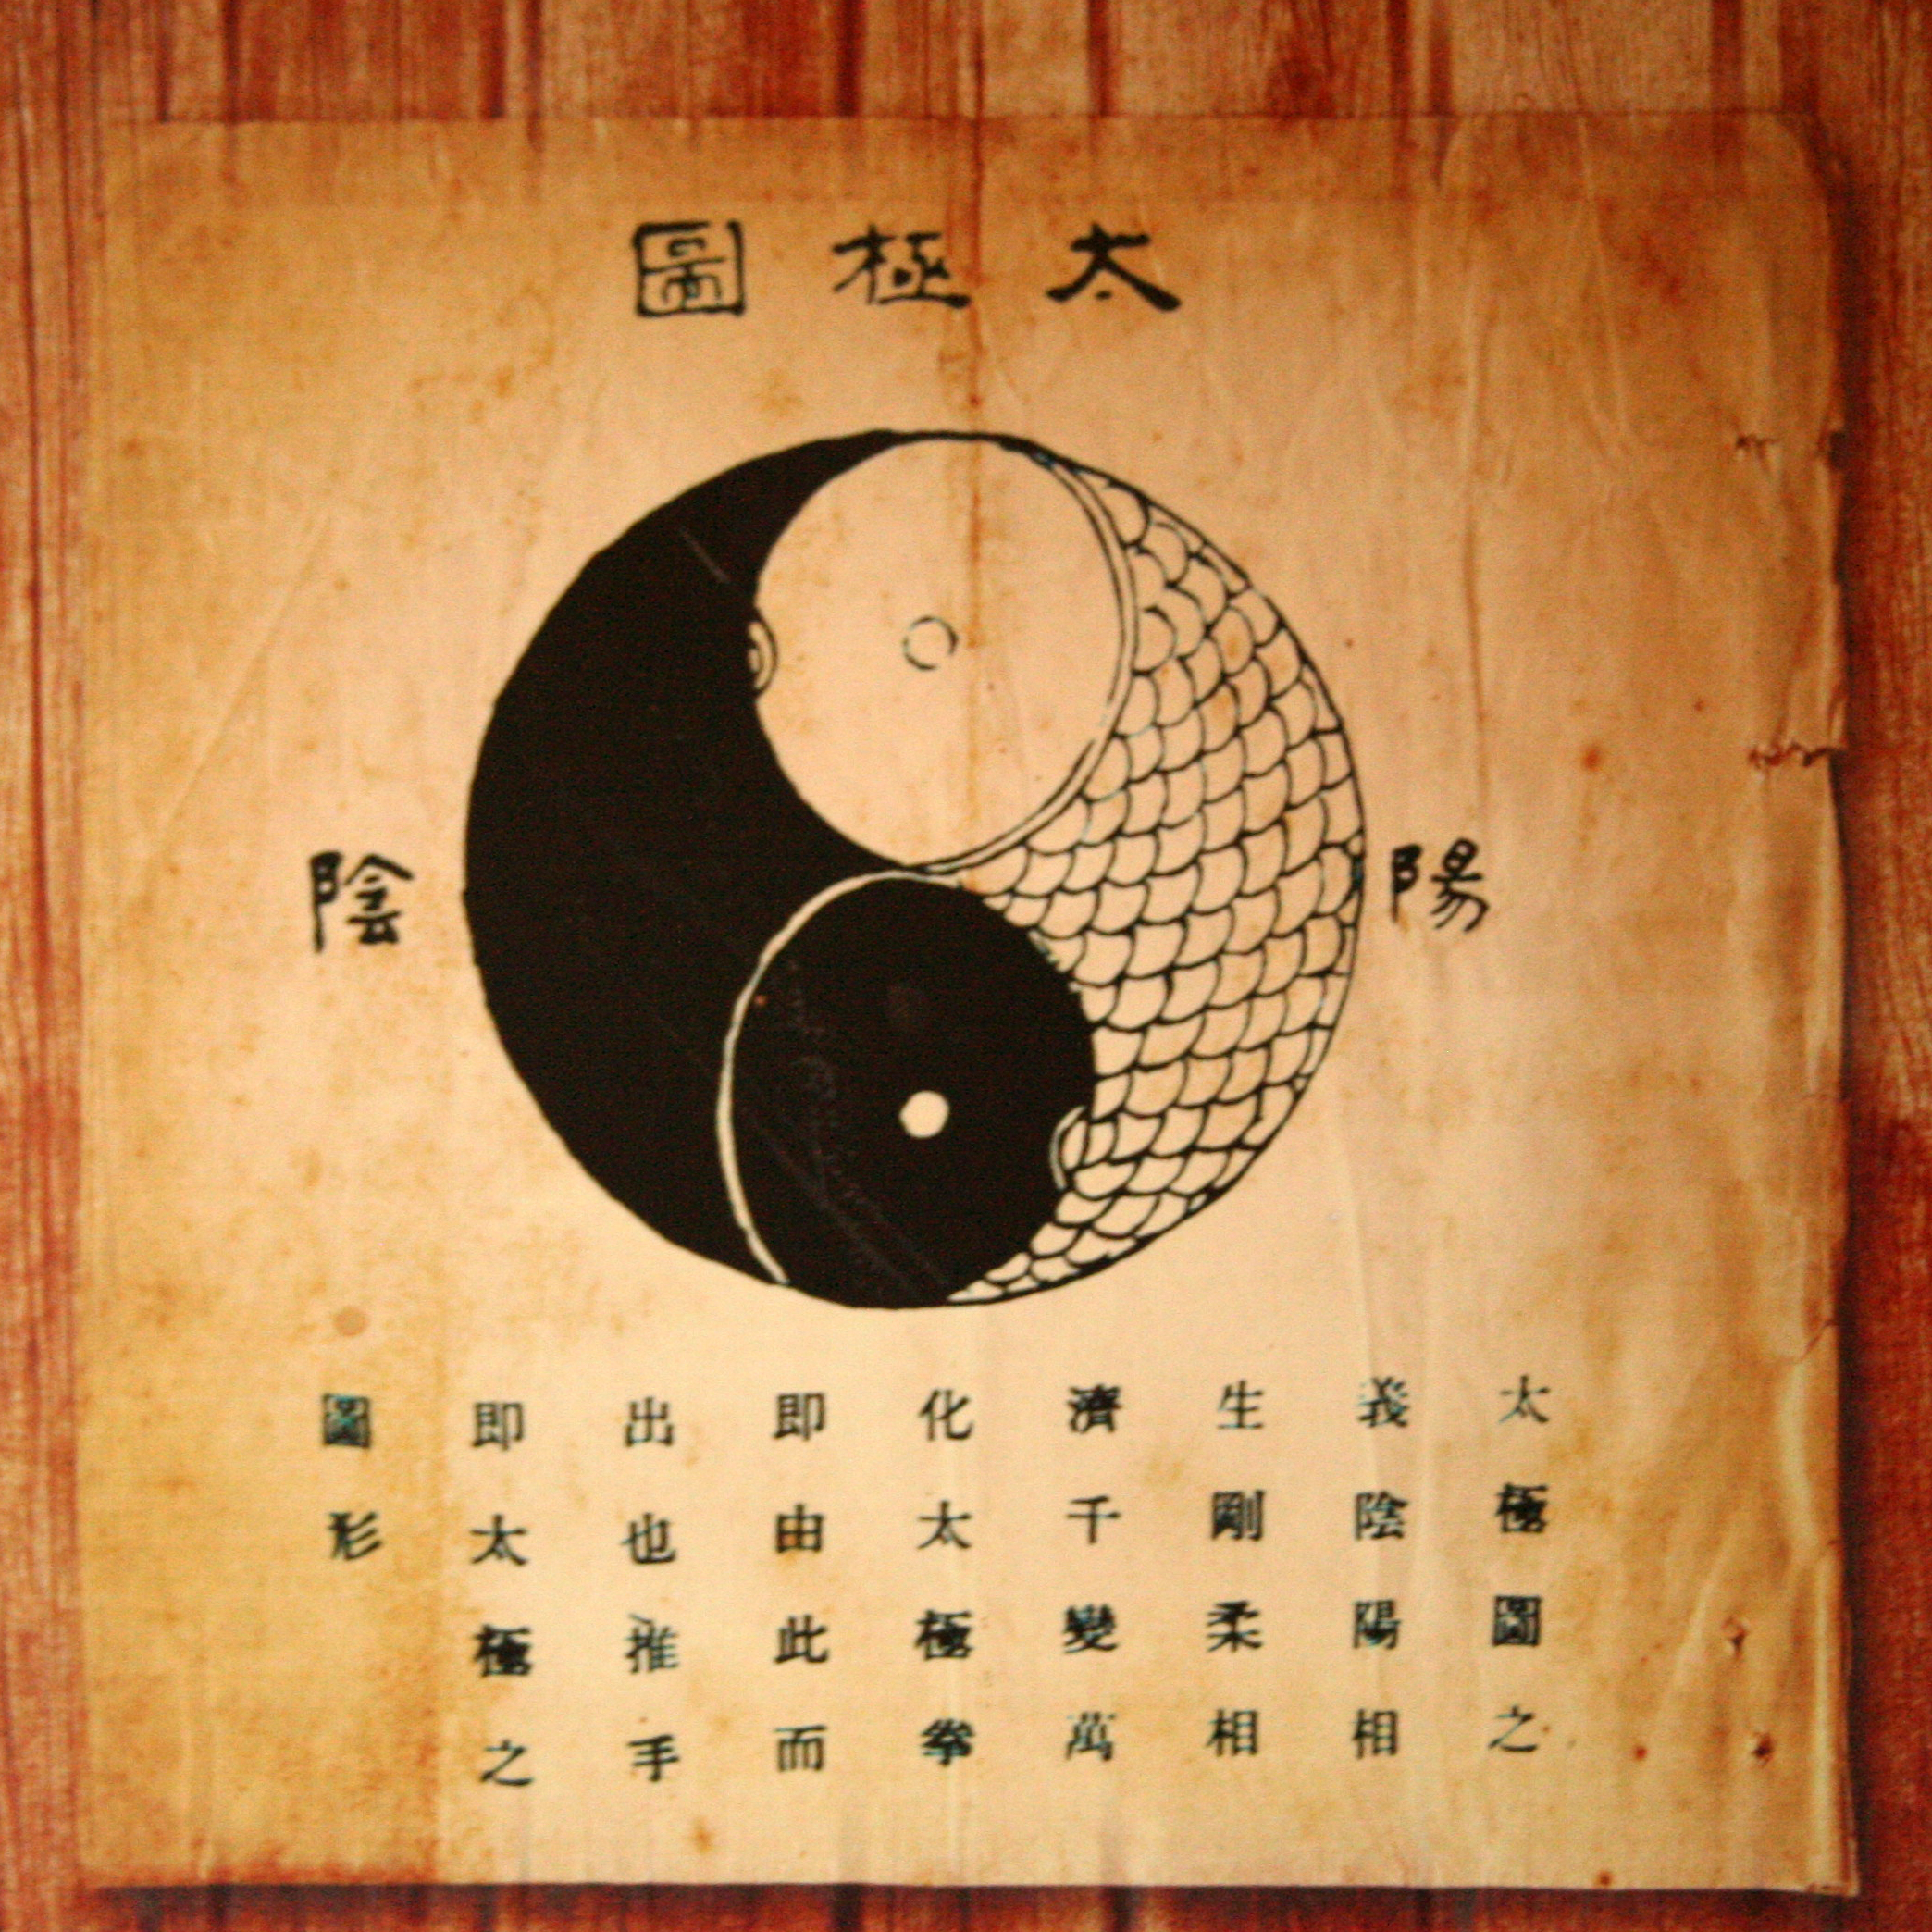 太極圖
陰
陽
太極圖之
義陰陽相
生剛柔相
濟千變萬
化太極拳
即由此而
出也推手
即太極之
圖形